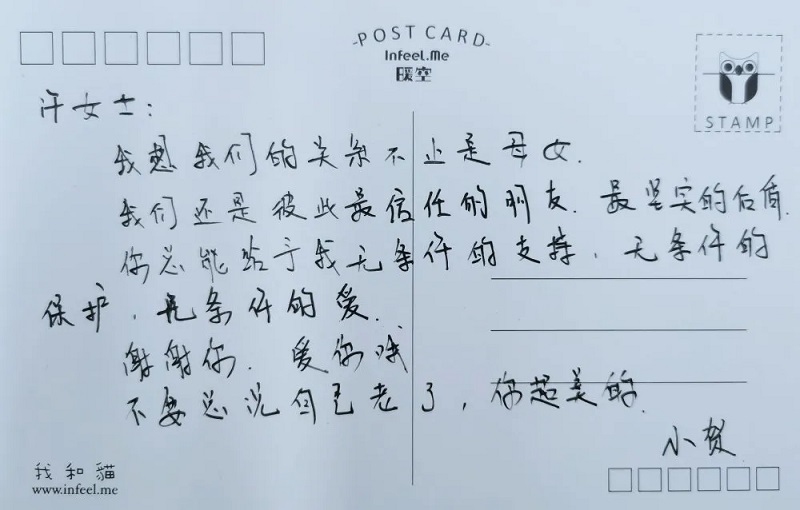 POST CARD
Infeel.Me
暖空
STAMP
许女士：
我想我们的关系不止是母女.
我们还是彼此最信任的朋友.最坚实的后盾.
你总能给予我无条件的支持,无条件的
保护,无条件的爱.
谢谢你.爱你哦
不要总说自己老了,你超美的.
小贺
我和貓
www.infeel.me